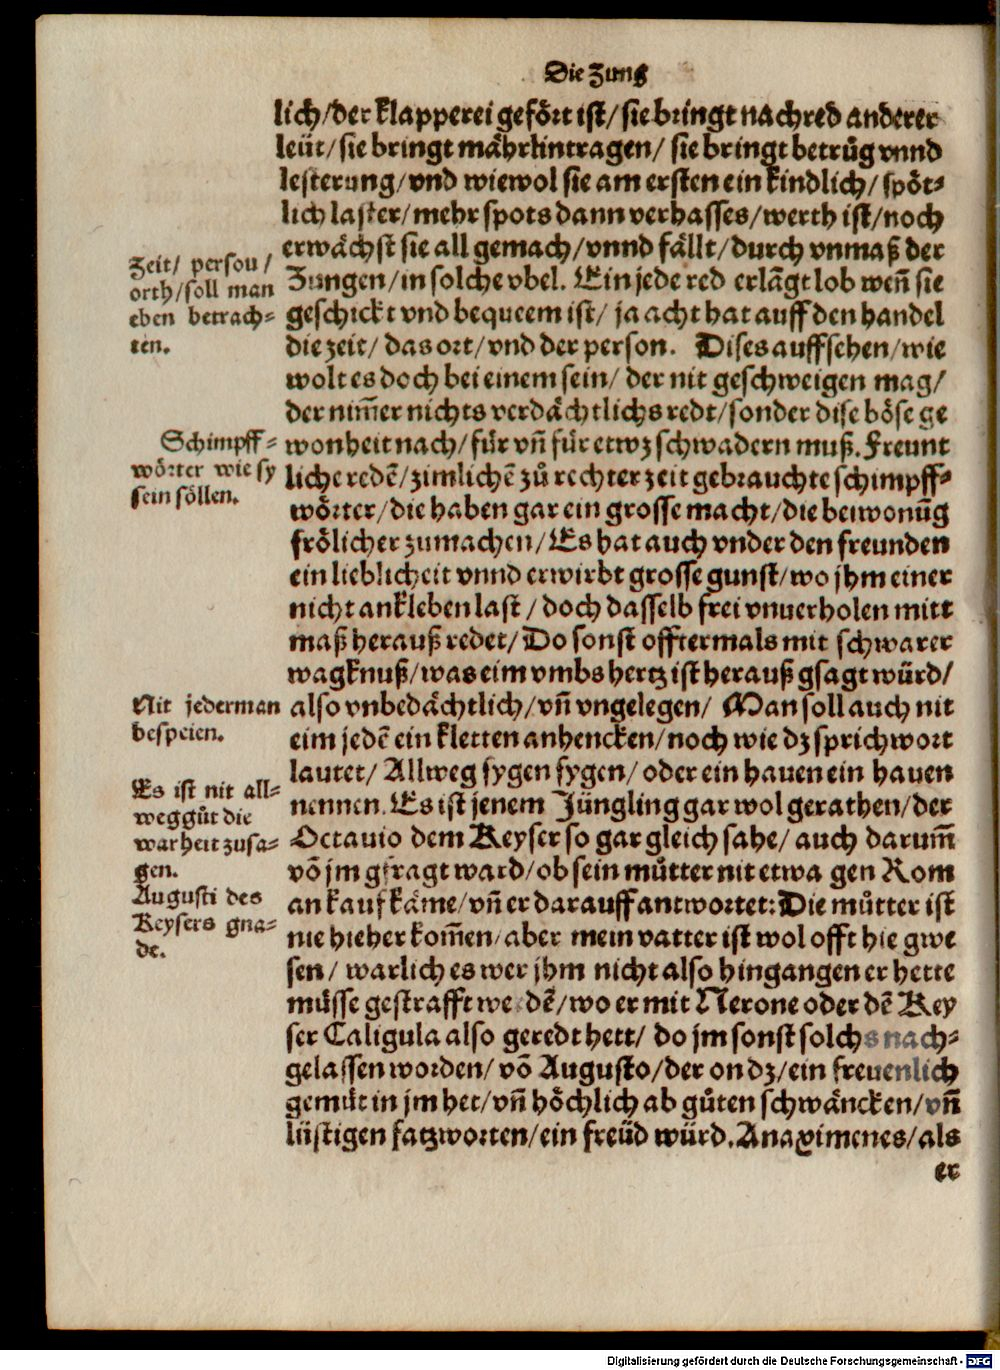 Die Zung
lich/der klapperei gefört ist/sie bringt nachred anderer
leüt/sie bringt mährlintragen/ sie bringt betrůg vnnd
lesterung/vnd wiewol sie am ersten ein kindlich/ spöt-
lich laster/mehr spots dann verhasses/werth ist/noch
erwächst sie all gemach/vnnd fällt/durch vnmaß der
Zungen/in solche vbel. Ein jede red erlãgt lob weñ sie
geschickt vnd bequeem ist/ ja acht hat auff den handel
die zeit/ das ort/vnd der person. Dises auffsehen/wie
wolt es doch bei einem sein/ der nit geschweigen mag/
der nim̃er nichts verdächtlichs redt/sonder dise böse ge
wonheit nach/für vñ für etwz schwadern muß. Freunt
liche redẽ/zimlichẽ zů rechter zeit gebrauchte schimpff-
wörter/die haben gar ein grosse macht/die beiwonũg
frölicher zumachen/Es hat auch vnder den freunden
ein lieblicheit vnnd erwirbt grosse gunst/wo jhm einer
nicht ankleben last/doch dasselb frei vnuerholen mitt
maß herauß redet/Do sonst offtermals mit schwarer
wagknuß/was eim vmbs hertz ist herauß gsagt würd/
also vnbedächtlich/vñ vngelegen/ Man soll auch nit
eim jedẽ ein kletten anhencken/noch wie dz sprichwort
lautet/ Allweg fygen fygen/ oder ein hauen ein hauen
nennen. Es ist jenem Jüngling gar wol gerathen/der
Octauio dem Keyser so gar gleich sahe/ auch darum̃
võ jm gfragt ward/ob sein můtter nit etwa gen Rom
an kauf käme/vñ er darauff antwortet: Die můtter ist
nie hieher kom̃en/aber mein vatter ist wol offt hie gwe
sen/ warlich es wer jhm nicht also hingangen er hette
müsse gestrafft werdẽ/wo er mit Nerone oder dẽ Key
ser Caligula also geredt hett/ do jm sonst solchs nach-
gelassen worden/ võ Augusto/der on dz/ein freuenlich
gemüt in jm het/vñ höchlich ab gůten schwäncken/vñ
lüstigen fatzworten/ein freüd würd. Anaximenes/als
er
Zeit/ person/
orth/soll man
eben betrach-
ten.
Schimpff-
wörter wie sy
sein söllen.
Nit jederman
bespeien.
Es ist nit all-
weg gůt die
warheit zusa-
gen.
Augusti des
Keysers gna-
de.
Digitalisierung gefördert durch die Deutsche Forschungsgemeinschaft - DFG